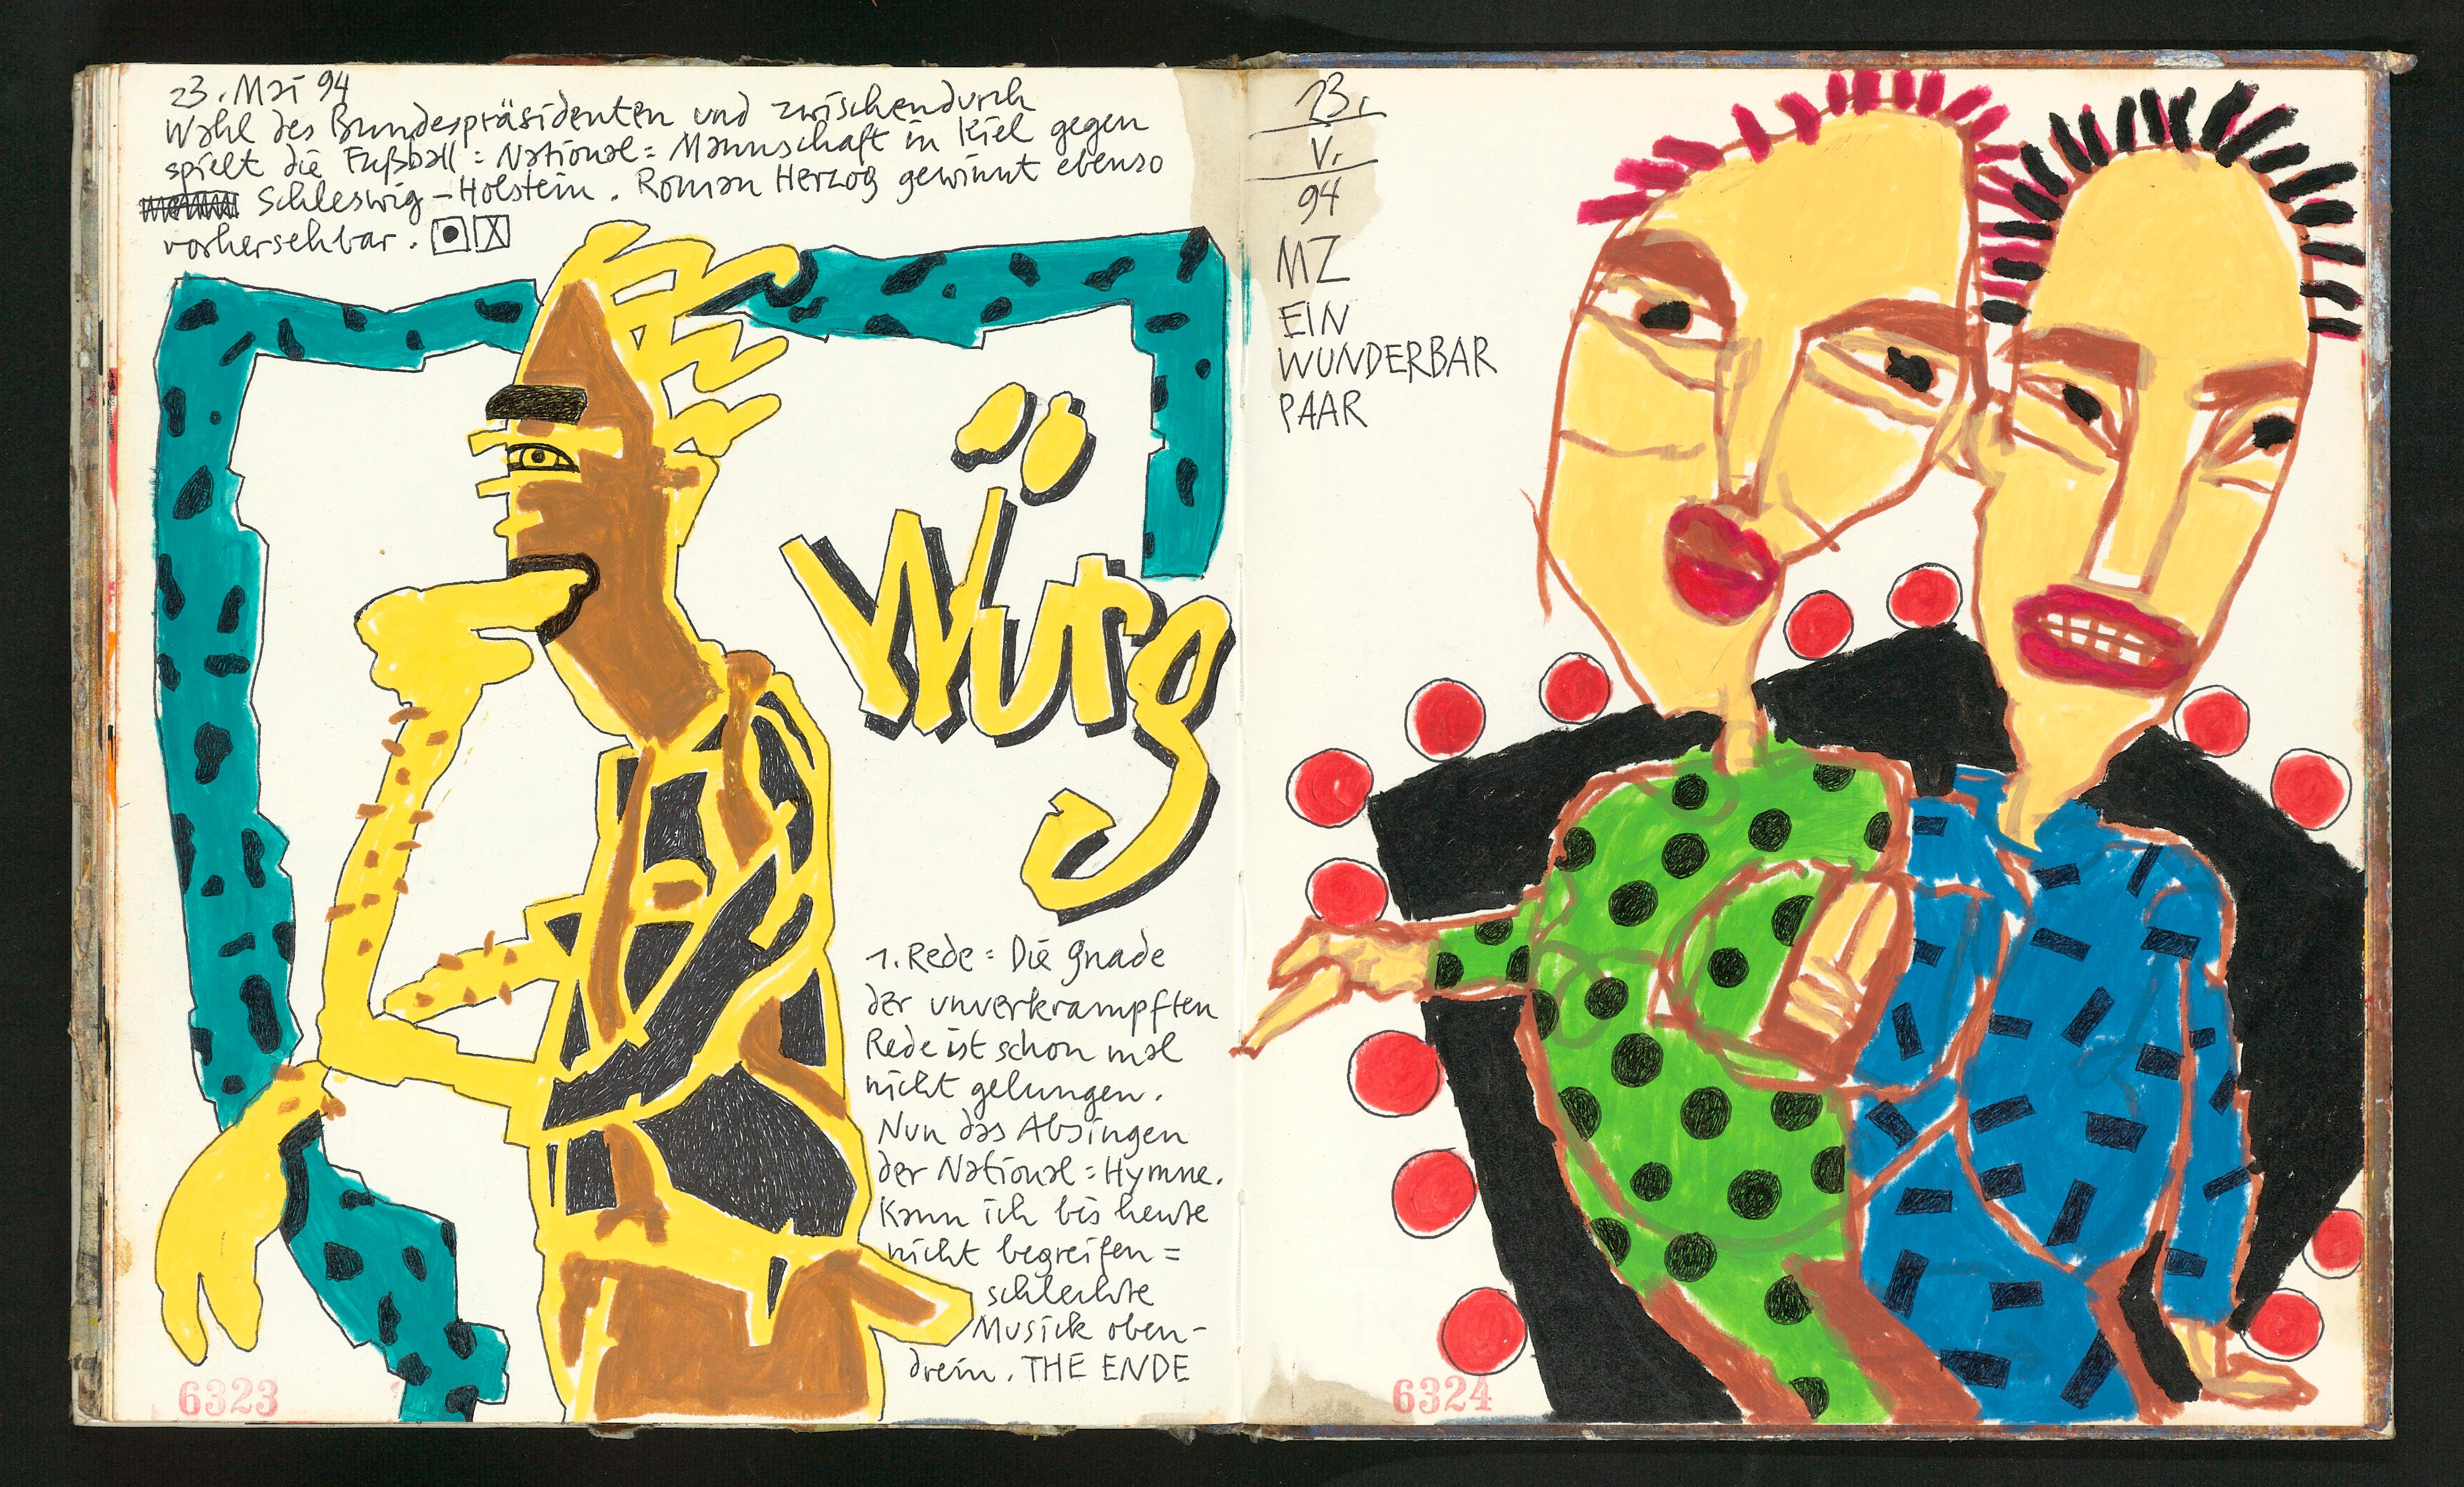 23. Mai 94
Wahl des Bundespräsidenten und zwischendurch
spielt die Fußball=National=Mannschaft in Kiel gegen
Schleswig-Holstein. Roman Herzog gewinnt ebenso
vorhersehbar.
Würg
1. Rede = Die Gnade
der unverkrampften
Rede ist schon mal
nicht gelungen.
Nun das Absingen
der National=Hymne.
Kann ich bis heute
nicht begreifen =
schlechte
Musick oben-
drein. THE ENDE
6323
23.
V.
94
MZ
EIN
WUNDERBAR
PAAR
6324